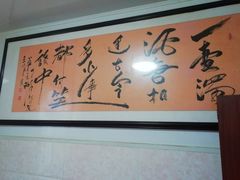 一壺濁
酒喜相
逢古今
多少事
都付笑
談中